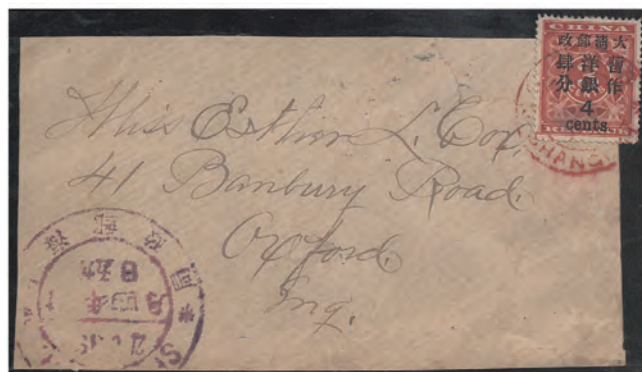 CHINA
大清郵政
暫作
洋銀
肆分
4
cents.
SHANG
Miss Esther L. Cox,
41 Banbury Road.
Oxford
Eng.